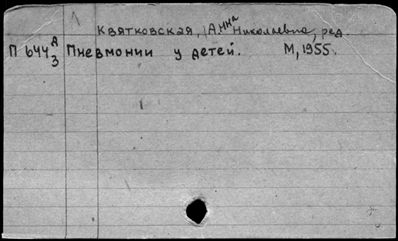 Квятковская, Анна Николаевна, ред.
П 644 А/3 Пневмонии у детей. М, 1955.